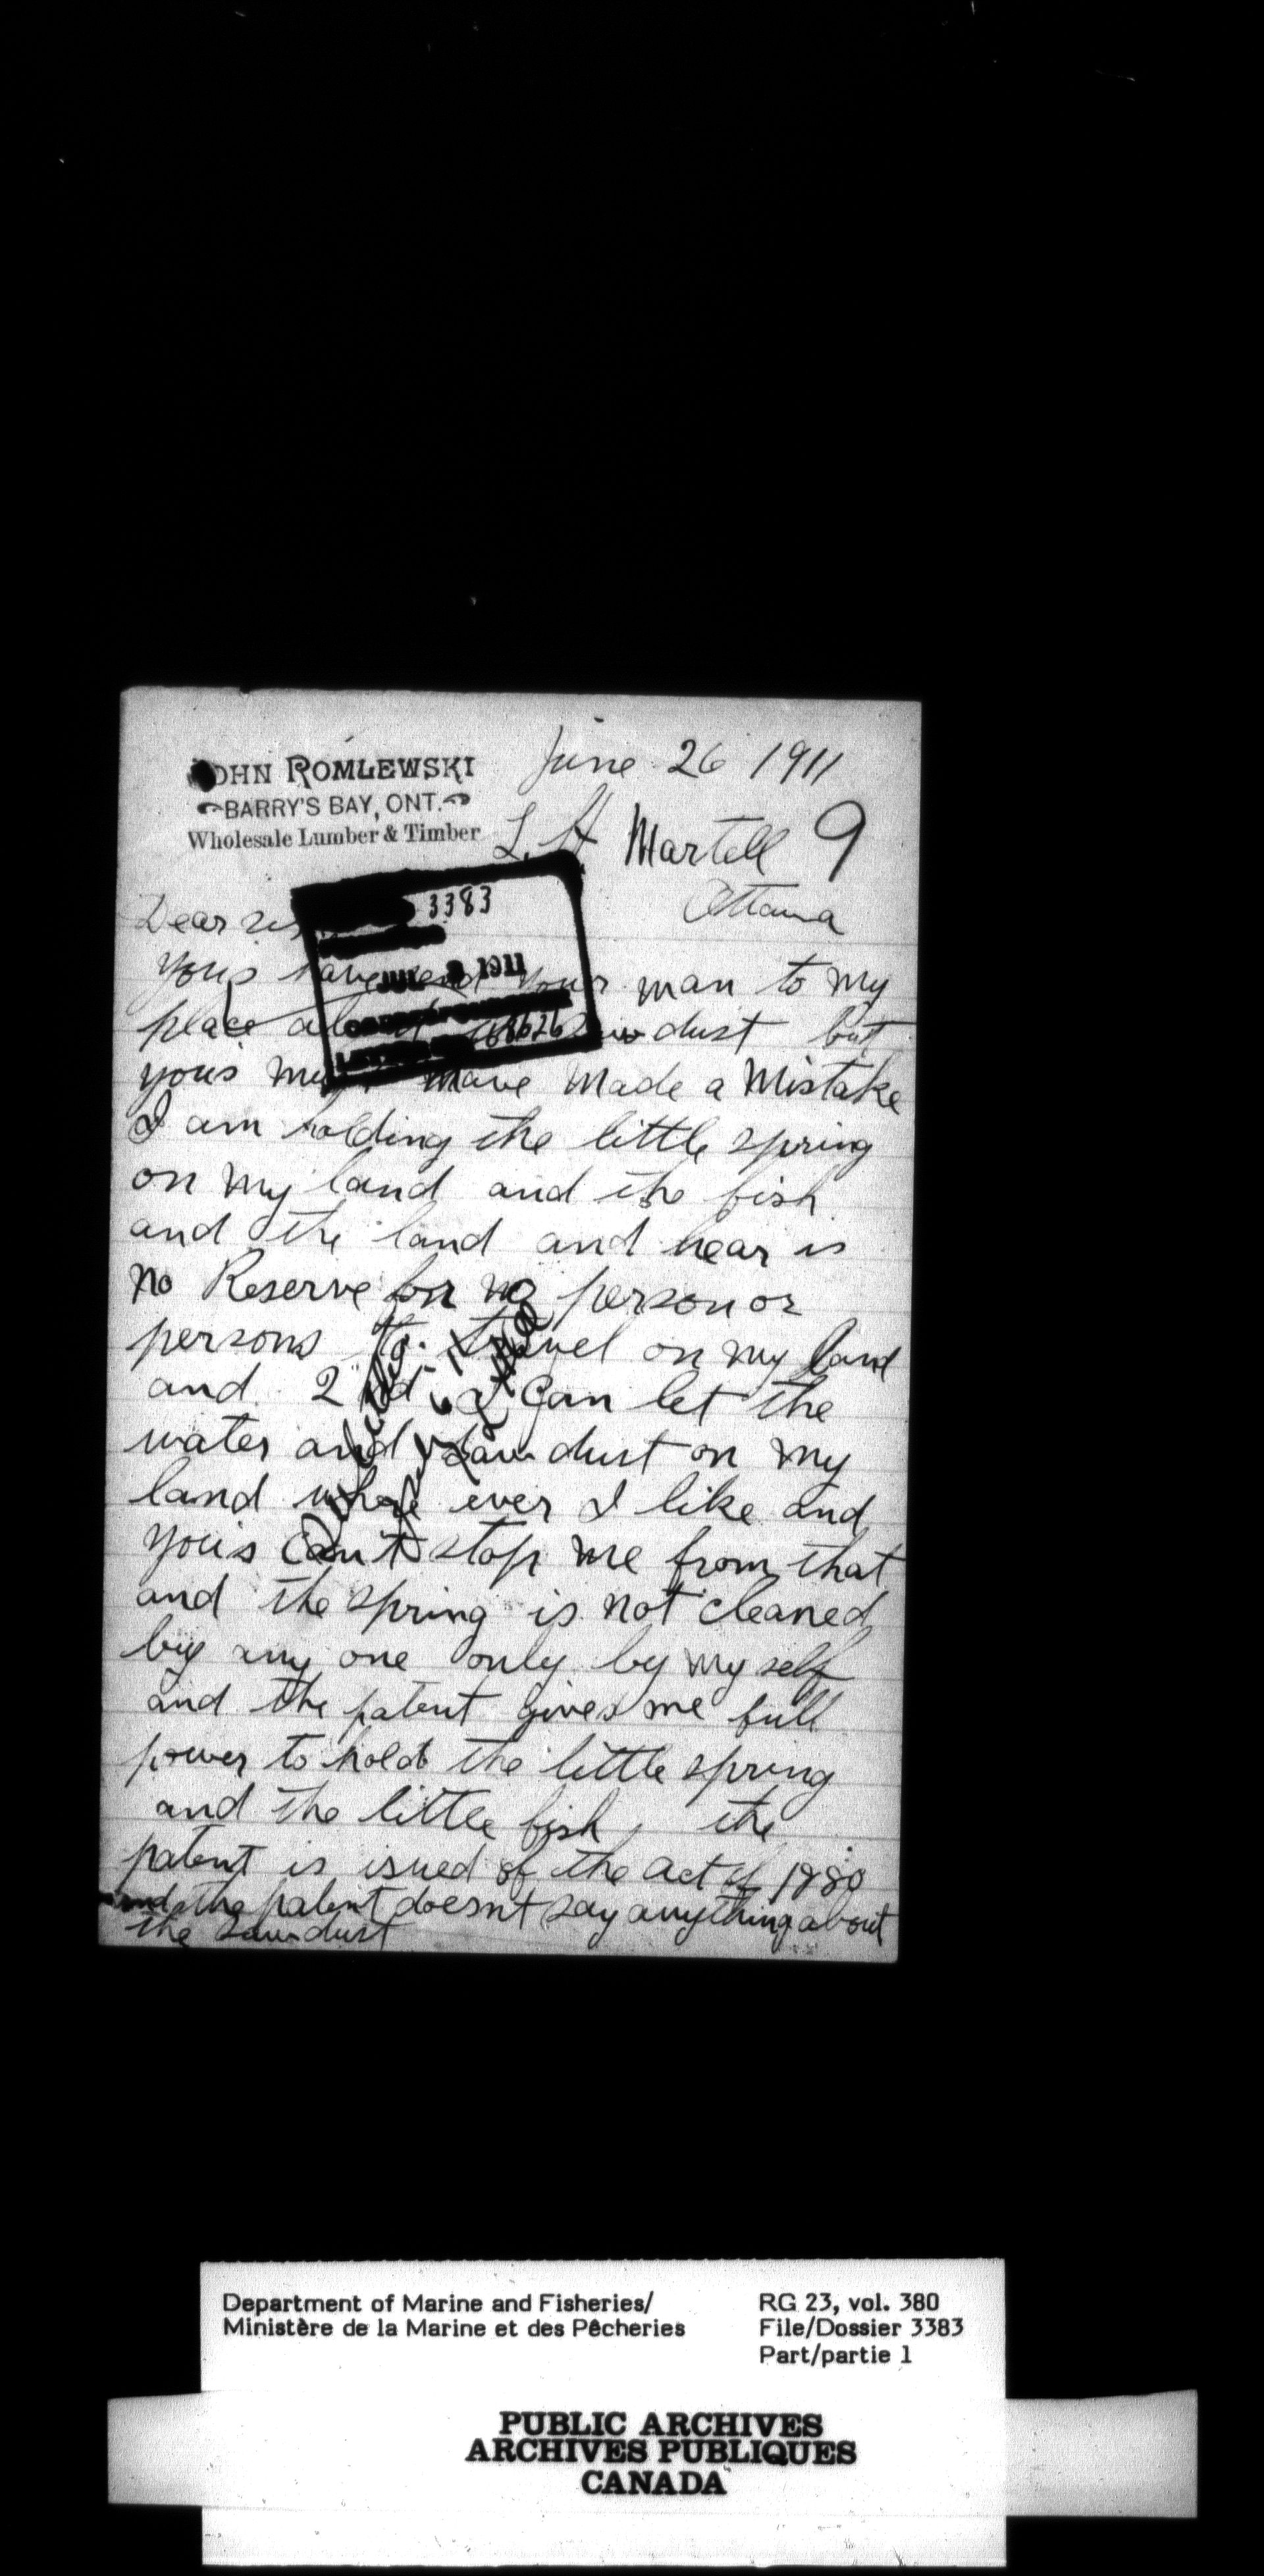 JOHN ROMLEWSKI
BARRY'S BAY, ONT.
Wholesale Lumber & Timber
June 26 1911
L. H Martell 9
Ottawa
3383
Dear sir
JUL 3 1911
yous have send your man to my
68626
place dust but
yous have made a Mistake
I am holding the little spring
on my land and the fish
and the land and hear is
no Reserve for no person or
persons to travel on my land
and 2nd I Can let the
water and sawdust on my
land where ever I like and
yous Can't stop me from that
and the spring is not cleaned
by any one only by my self
and the patent gives me full
power to hold the little spring
and the little fish the
patent is isued of the act of 1880
and the patent doesnt say anything about
the sawdust
Department of Marine and Fisheries/
Ministère de la Marine et des Pêcheries
RG 23, vol. 380
File/Dossier 3383
Part/partie 1
PUBLIC ARCHIVES
ARCHIVES PUBLIQUES
CANADA